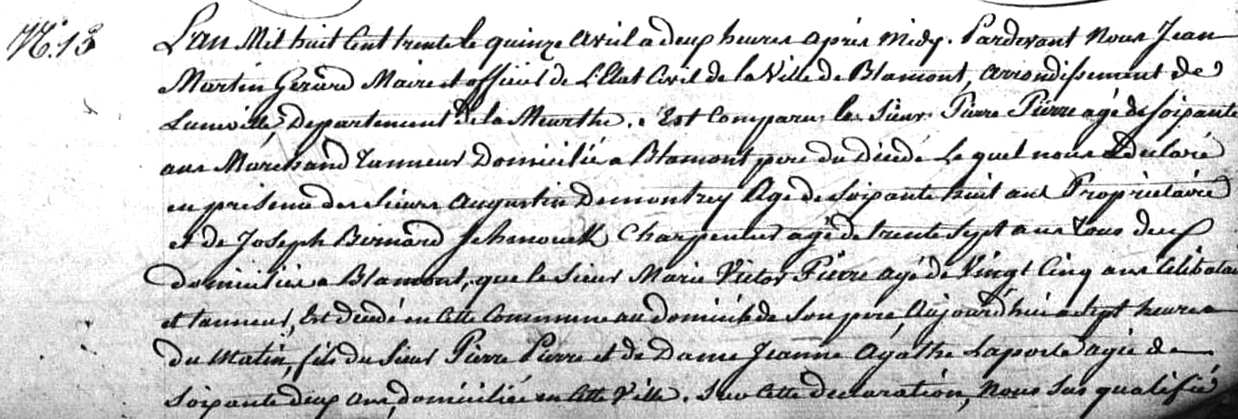 N.º 13 L'an Mil huit Cent trente le quinze avril a deux heures après midy. Pardevant Nous Jean
Martin Gérard Maire et officier de L'Etat Civil de la Ville de Blamont, arrondissement de
Luneville Departement de la Meurthe. Est Comparu le Sieur Pierre Pierre agé de soixante
ans Marchand Tanneur Domicilié a Blamont pere du Décédé Le quel nous a déclaré
en présence des sieurs Augustin Demontrey Agé de soixante huit ans Propriétaire
et de Joseph Bernard Charpentier agé de trente sept ans tous deux
domiciliés a Blamont, que le Sieur Marie Victor Pierre agé de Vingt Cinq ans Célibataire
et tanneur, Est décédé en Cette Commune au domicile de son pere, Aujourd'hui a sept heures
du Matin, fils du Sieur Pierre Pierre et de Dame Jeanne Agathe Laporte agée de
soixante deux ans, domiciliée en Cette Ville. Sur Cette déclaration, Nous Sus qualifié